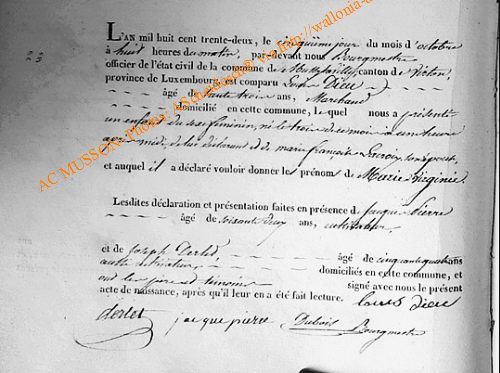 23
L'AN mil huit cent trente-deux, le cinquième jour du mois d'octobre
à huit heures du matin par-devant nous Bourgmestre
officier de l'état civil de la commune de canton de Virton,
province de Luxembourg, est comparu Dieu
âgé de trente trois ans, Marchand
domicilié en cette commune, le quel nous a présenté
un enfant du sexe féminin, né le trois de ce mois à une heure
après midi, de lui déclarant et de marie françoise Lacroix, son épouse,
et auquel il a déclaré vouloir donner les prénoms de Marie Virginie.
Lesdites déclaration et présentation faites en présence de jacque pierre
âgé de soixante deux ans, cultivateur
et de Joseph Derlet, âgé de cinquante quatre ans
domiciliés en cette commune, et
ont les père et témoins signé avec nous le présent
acte de naissance, après qu'il leur en a été fait lecture. Louis dieu
derlet jacque pierre Dubois Bourgmestre
AC MUSSON - Photos